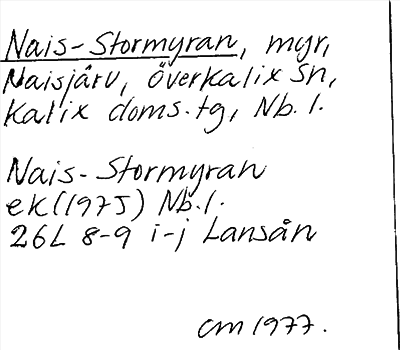 Nais-Stormyran, myr,
Naisjärv, Överkalix sn,
Kalix doms.tg, Nb.l.
Nais-Stormyran
ek(1975) Nb.l.
26L 8-9 i-j Lansån
CM 1977.